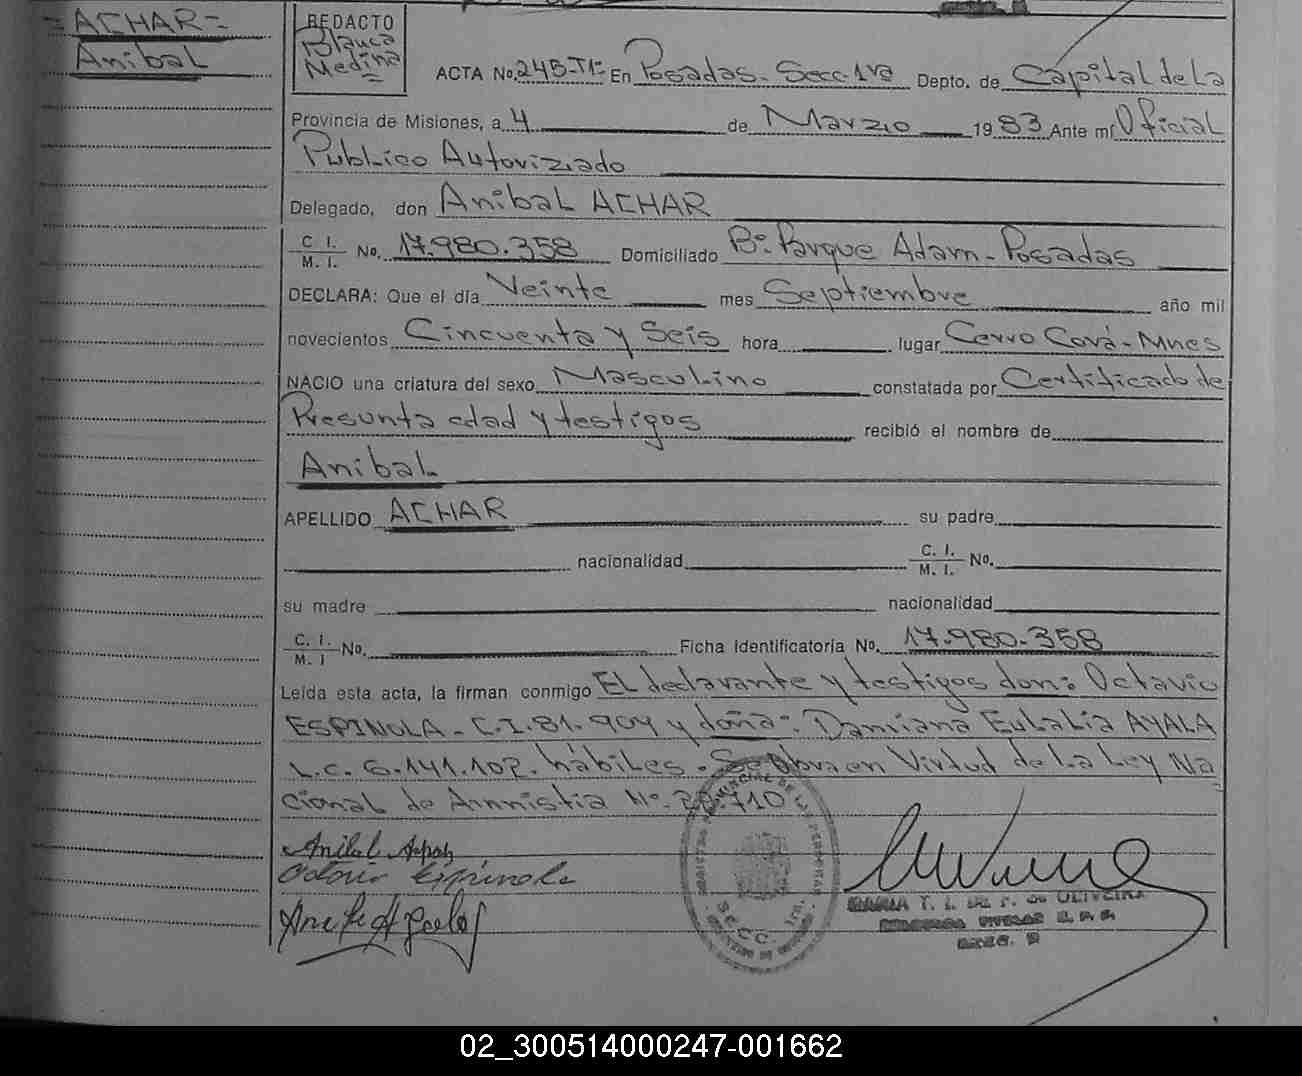 =ACHAR=
Anibal
REDACTO
Blanca
Medina
ACTA No. 245-T1º En Posadas - Secc. 1ra Depto. de Capital de La
Provincia de Misiones, a 4 de Marzo 1983 Ante mí Oficial
Publico Autorizado
Delegado, don Anibal ACHAR
C. I. M. I. No. 17.980.358 Domiciliado Bº Parque Adam - Posadas
DECLARA: Que el día Veinte mes Septiembre año mil
novecientos Cincuenta y Seis hora lugar Cerro Corá - Mnes
NACIO una criatura del sexo Masculino constatada por Certificado de
Presunta edad y testigos recibió el nombre de
Anibal
APELLIDO ACHAR su padre
nacionalidad C. I. M. I. No.
su madre nacionalidad
C. I. M. I No. Ficha Identificatoria No. 17.980.358
Leída esta acta, la firman conmigo El declarante y testigos don: Octavio
ESPINOLA - C.I. 81.904 y doña: Damiana Eulalia AYALA
L.C. 6.141.102. hábiles. Se labra en Virtud de La Ley Na
cional de Amnistia Nº 20.710
Octavio Espinola
SECC. 1ra.
MARIA T. I. DE P. de OLIVEIRA
02_300514000247-001662